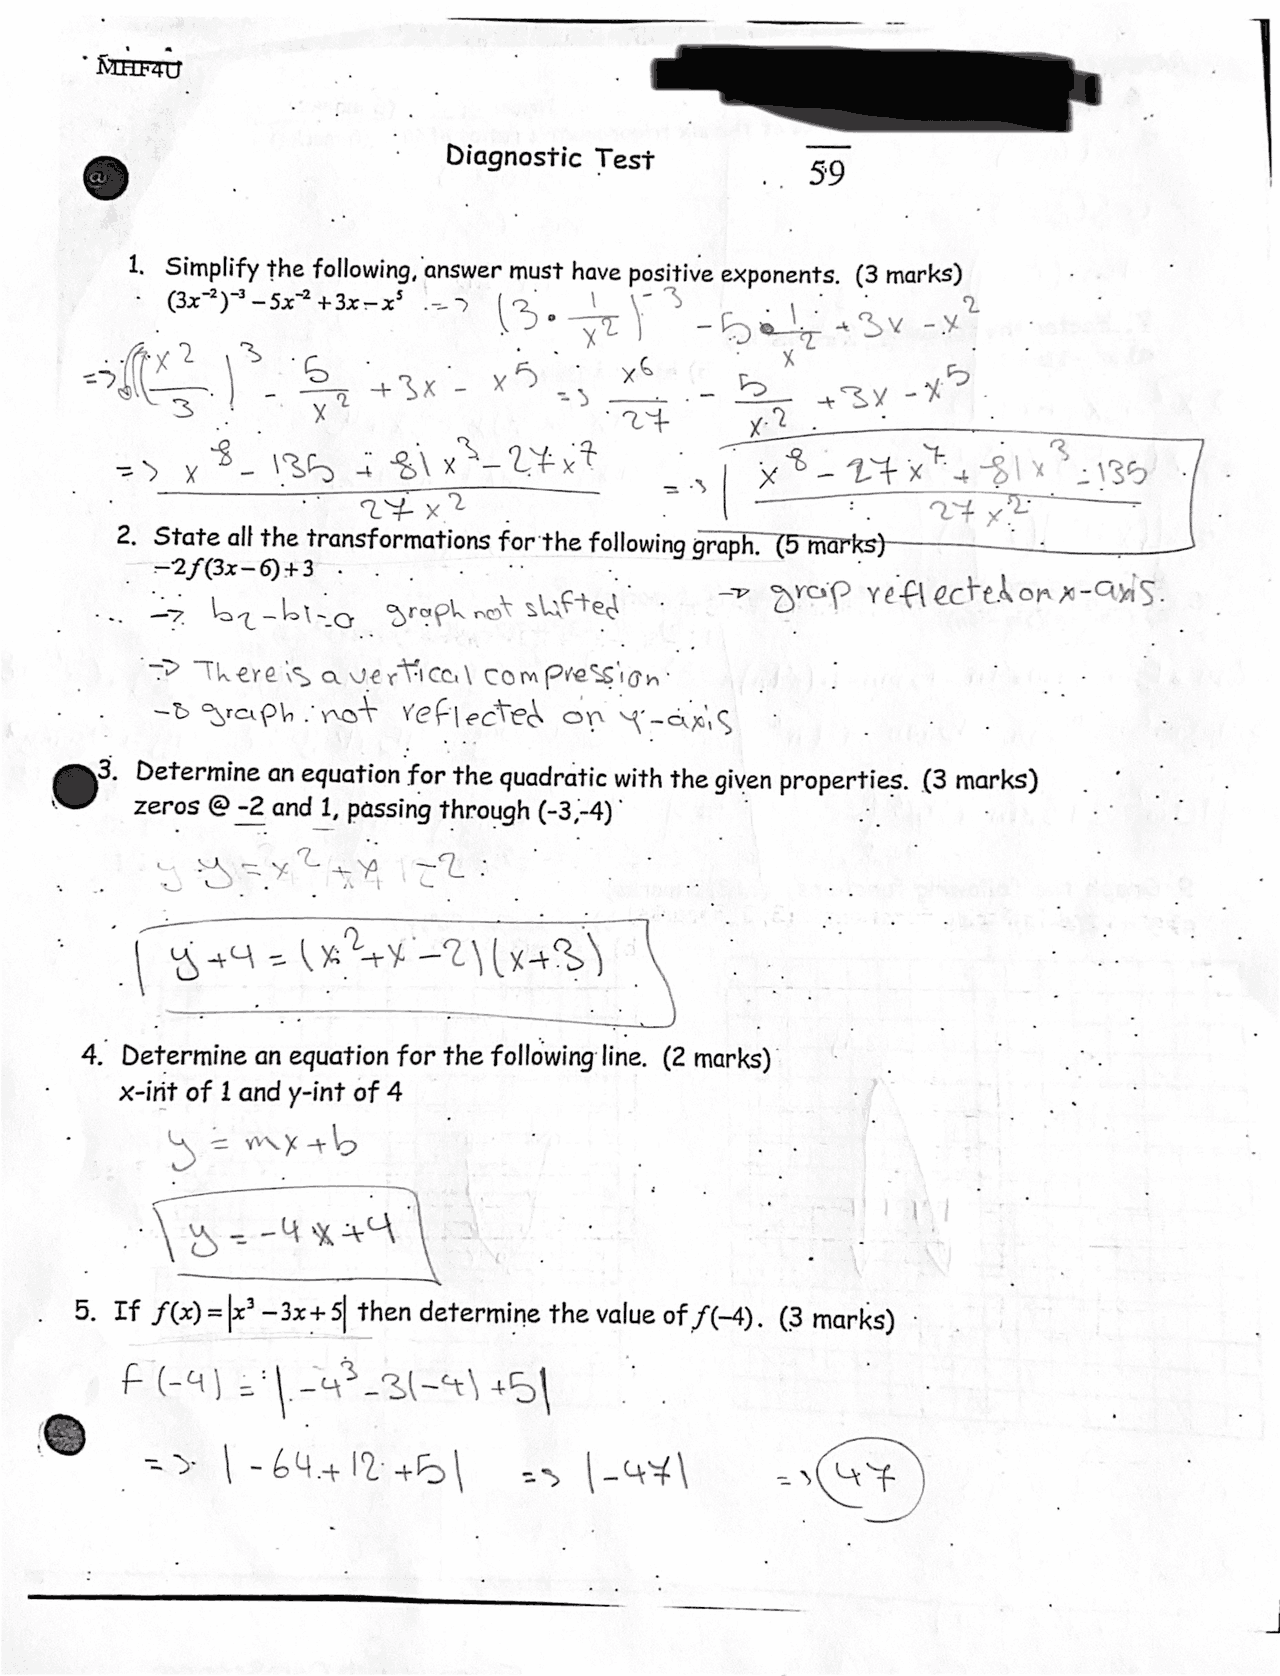 MHF4U
Diagnostic Test
59
@
1. Simplify the following, answer must have positive exponents. (3 marks)
(3x⁻²)⁻³ – 5x⁻² + 3x – x⁵ => (3 · 1/x²)⁻³ - 5 · 1/x² + 3x - x²
=> (x²/3)³ - 5/x² + 3x - x⁵ => x⁶/27 - 5/x² + 3x - x⁵
=> (x⁸ - 135 + 81x³ - 27x⁷)/27x² => (x⁸ - 27x⁷ + 81x³ - 135)/27x²
2. State all the transformations for the following graph. (5 marks)
–2f(3x – 6) + 3
-> graph not shifted
-> grap reflected on x-axis.
-> There is a vertical compression
-> graph not reflected on y-axis
3. Determine an equation for the quadratic with the given properties. (3 marks)
zeros @ -2 and 1, passing through (-3,-4)
y = x² + x - 2
y + 4 = (x² + x - 2)(x + 3)
4. Determine an equation for the following line. (2 marks)
x-int of 1 and y-int of 4
y = mx + b
y = -4x + 4
5. If f(x) = |x³ – 3x + 5| then determine the value of f(–4). (3 marks)
f(-4) = |-4³ - 3(-4) + 5|
=> |-64 + 12 + 5| => |-47| => 47